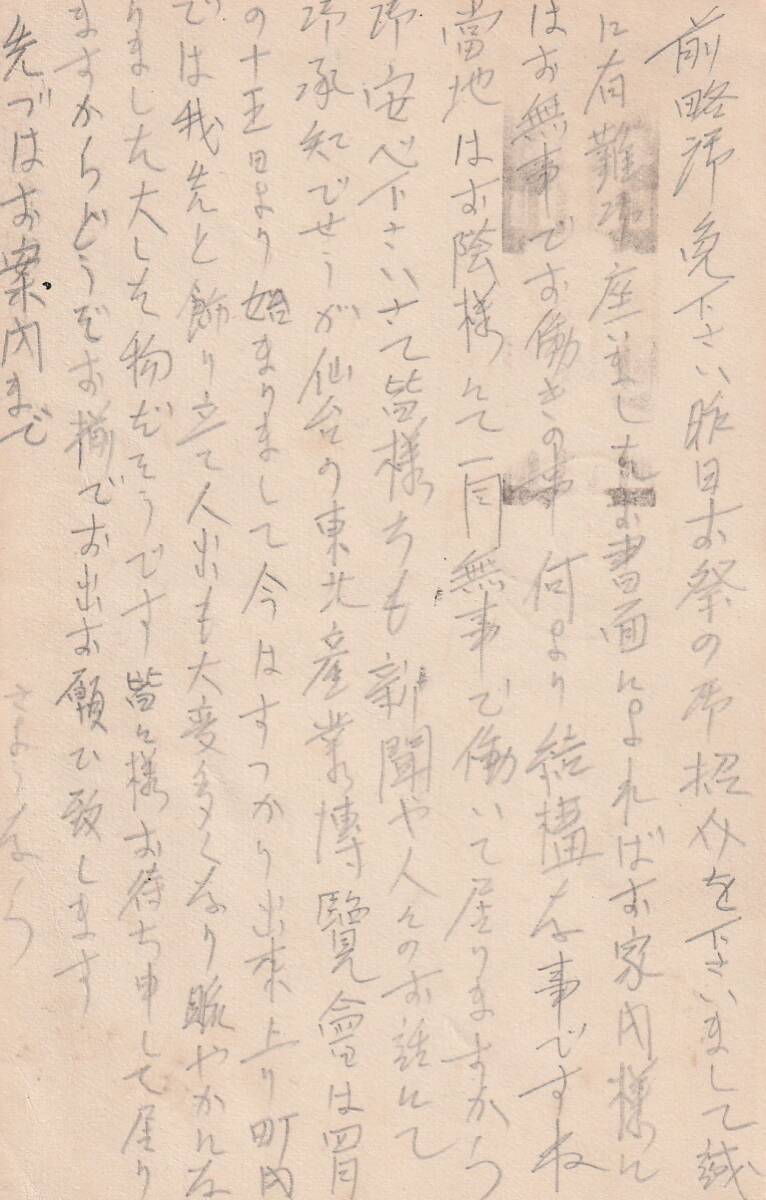 前略御免下さい昨日お祭の御招介を下さいまして誠
に有難御座いましたお書面によればお家内様に
はお無事でお働きの事何より結構な事ですね
當地はお陰様にて一同無事で働いて居りますから
御安心下さいさて皆様ちも新聞や人々のお話にて
御承知でせうが仙台の東北産業博覧會は四月
の十五日より始まりまして今はすつかり出来上り町内
では我先と飾り立て人出も大変多くなり賑やかにな
りました大した物だそうです皆々様お待ち申して居り
ますからどうぞお揃でお出お願ひ致します
先づはお案内まで
さようなら